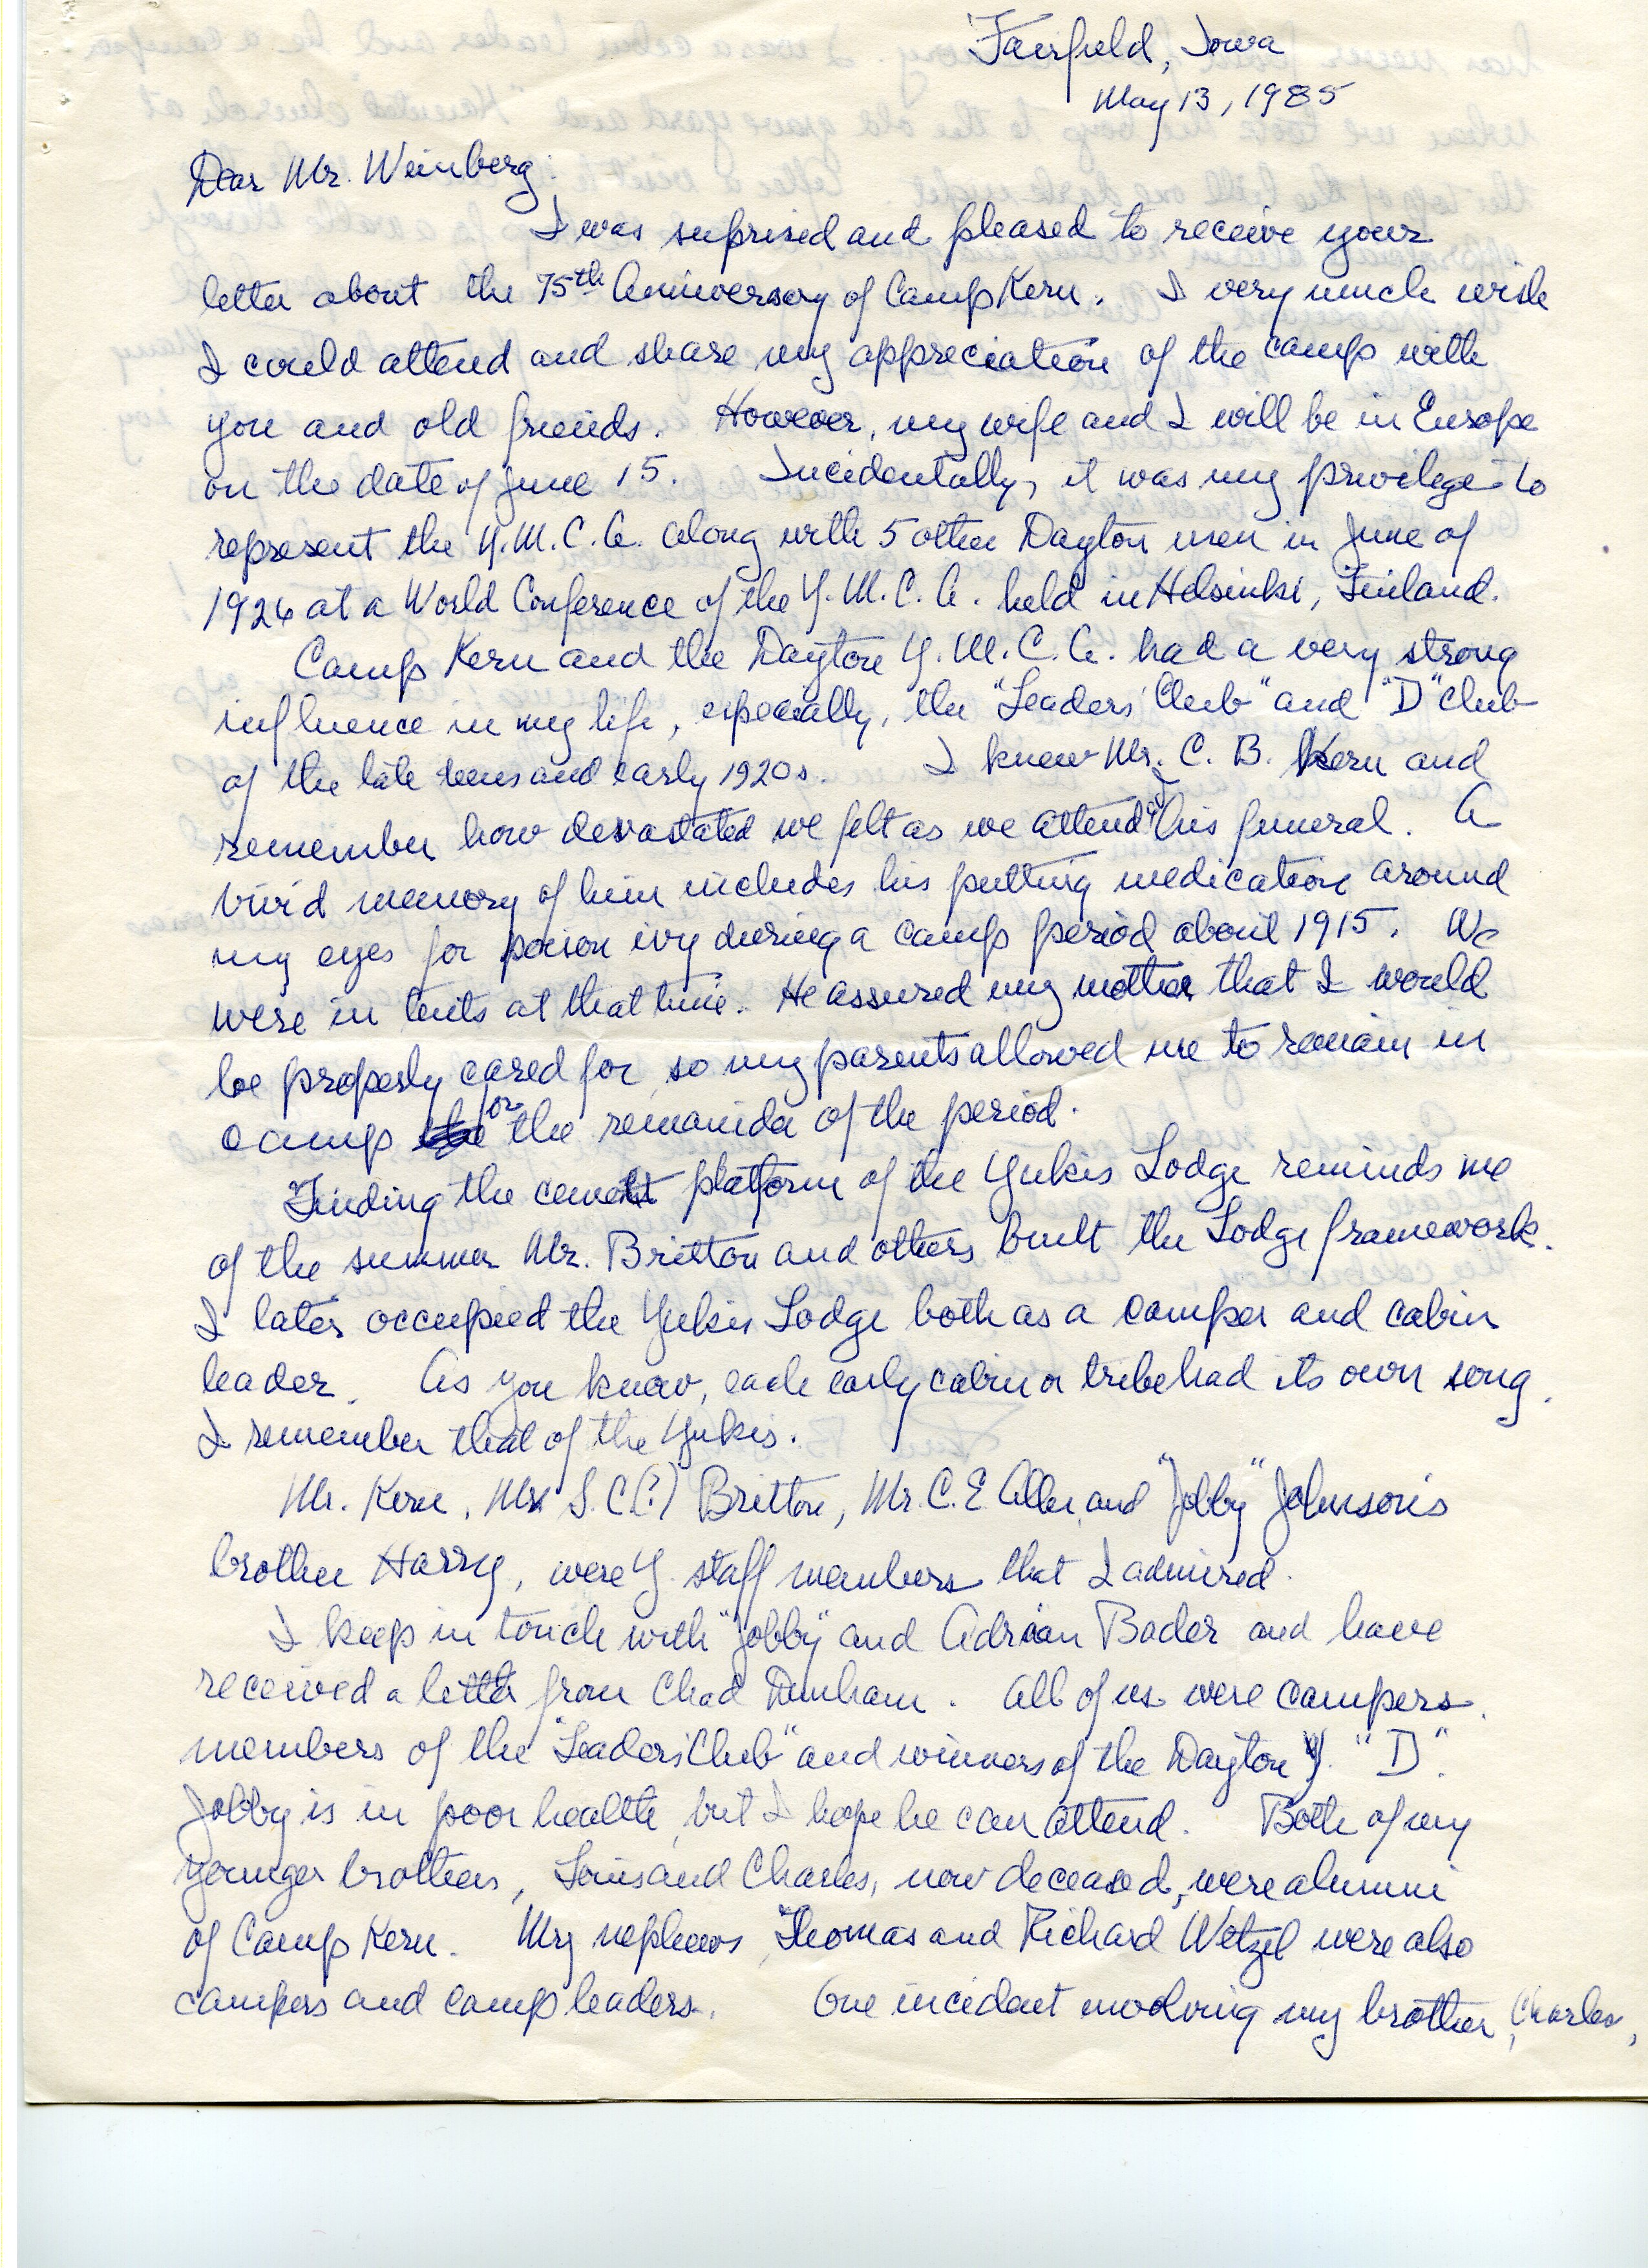 Fairfield, Iowa
May 13, 1985
Dear Mr. Weinberg:
I was suprised and pleased to receive your
letter about the 75th Anniversary of Camp Kern. I very much wish
I could attend and share my appreciation of the camp with
you and old friends. However, my wife and I will be in Europe
on the date of June 15. Incidentally, it was my privilege to
represent the Y.M.C.A. along with 5 other Dayton men in June of
1926 at a World Conference of the Y.M.C.A. held in Helsinki, Finland.
Camp Kern and the Dayton Y.M.C.A. had a very strong
influence in my life, especially, the "Leaders' Club" and "D" Club
of the late teens and early 1920s. I knew Mr. C. B. Kern and
remember how devastated we felt as we attended his funeral. A
vivid memory of him includes his putting medication around
my eyes for poison ivy during a camp period about 1915. We
were in tents at that time. He assured my mother that I would
be properly cared for, so my parents allowed me to remain in
camp for the remainder of the period.
Finding the cement platform of the Yukis Lodge reminds me
of the summer Mr. Britton and others built the Lodge framework.
I later occupied the Yukis Lodge both as a camper and cabin
leader. As you know, each early cabin or tribe had its own song.
I remember that of the Yukis.
Mr. Kern, Mr. S.C.(?) Britton, Mr. C. E. Allen, and "Jobby" Johnson's
brother Harry, were Y. staff members that I admired.
I keep in touch with "Jobby" and Adrian Bader and have
received a letter from Chad Dunham. All of us were campers,
members of the "Leaders' Club" and winners of the Dayton Y. "D".
Jobby is in poor health, but I hope he can attend. Both of my
younger brothers, Louis and Charles, now deceased, were alumni
of Camp Kern. My nephews, Thomas and Richard Wetzel were also
campers and camp leaders. One incident involving my brother, Charles,